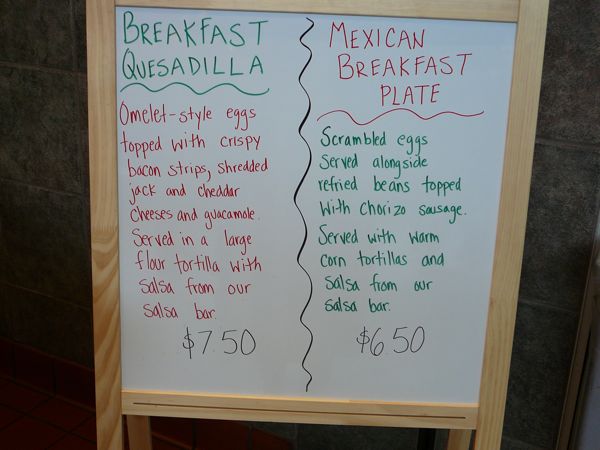 BREAKFAST
QUESADILLA
Omelet-style eggs
topped with crispy
bacon strips, shredded
jack and cheddar
cheeses and guacamole.
Served in a large
flour tortilla with
salsa from our
salsa bar.
$7.50
MEXICAN
BREAKFAST
PLATE
Scrambled eggs
Served alongside
refried beans topped
with chorizo sausage.
Served with warm
corn tortillas and
salsa from our
salsa bar.
$6.50